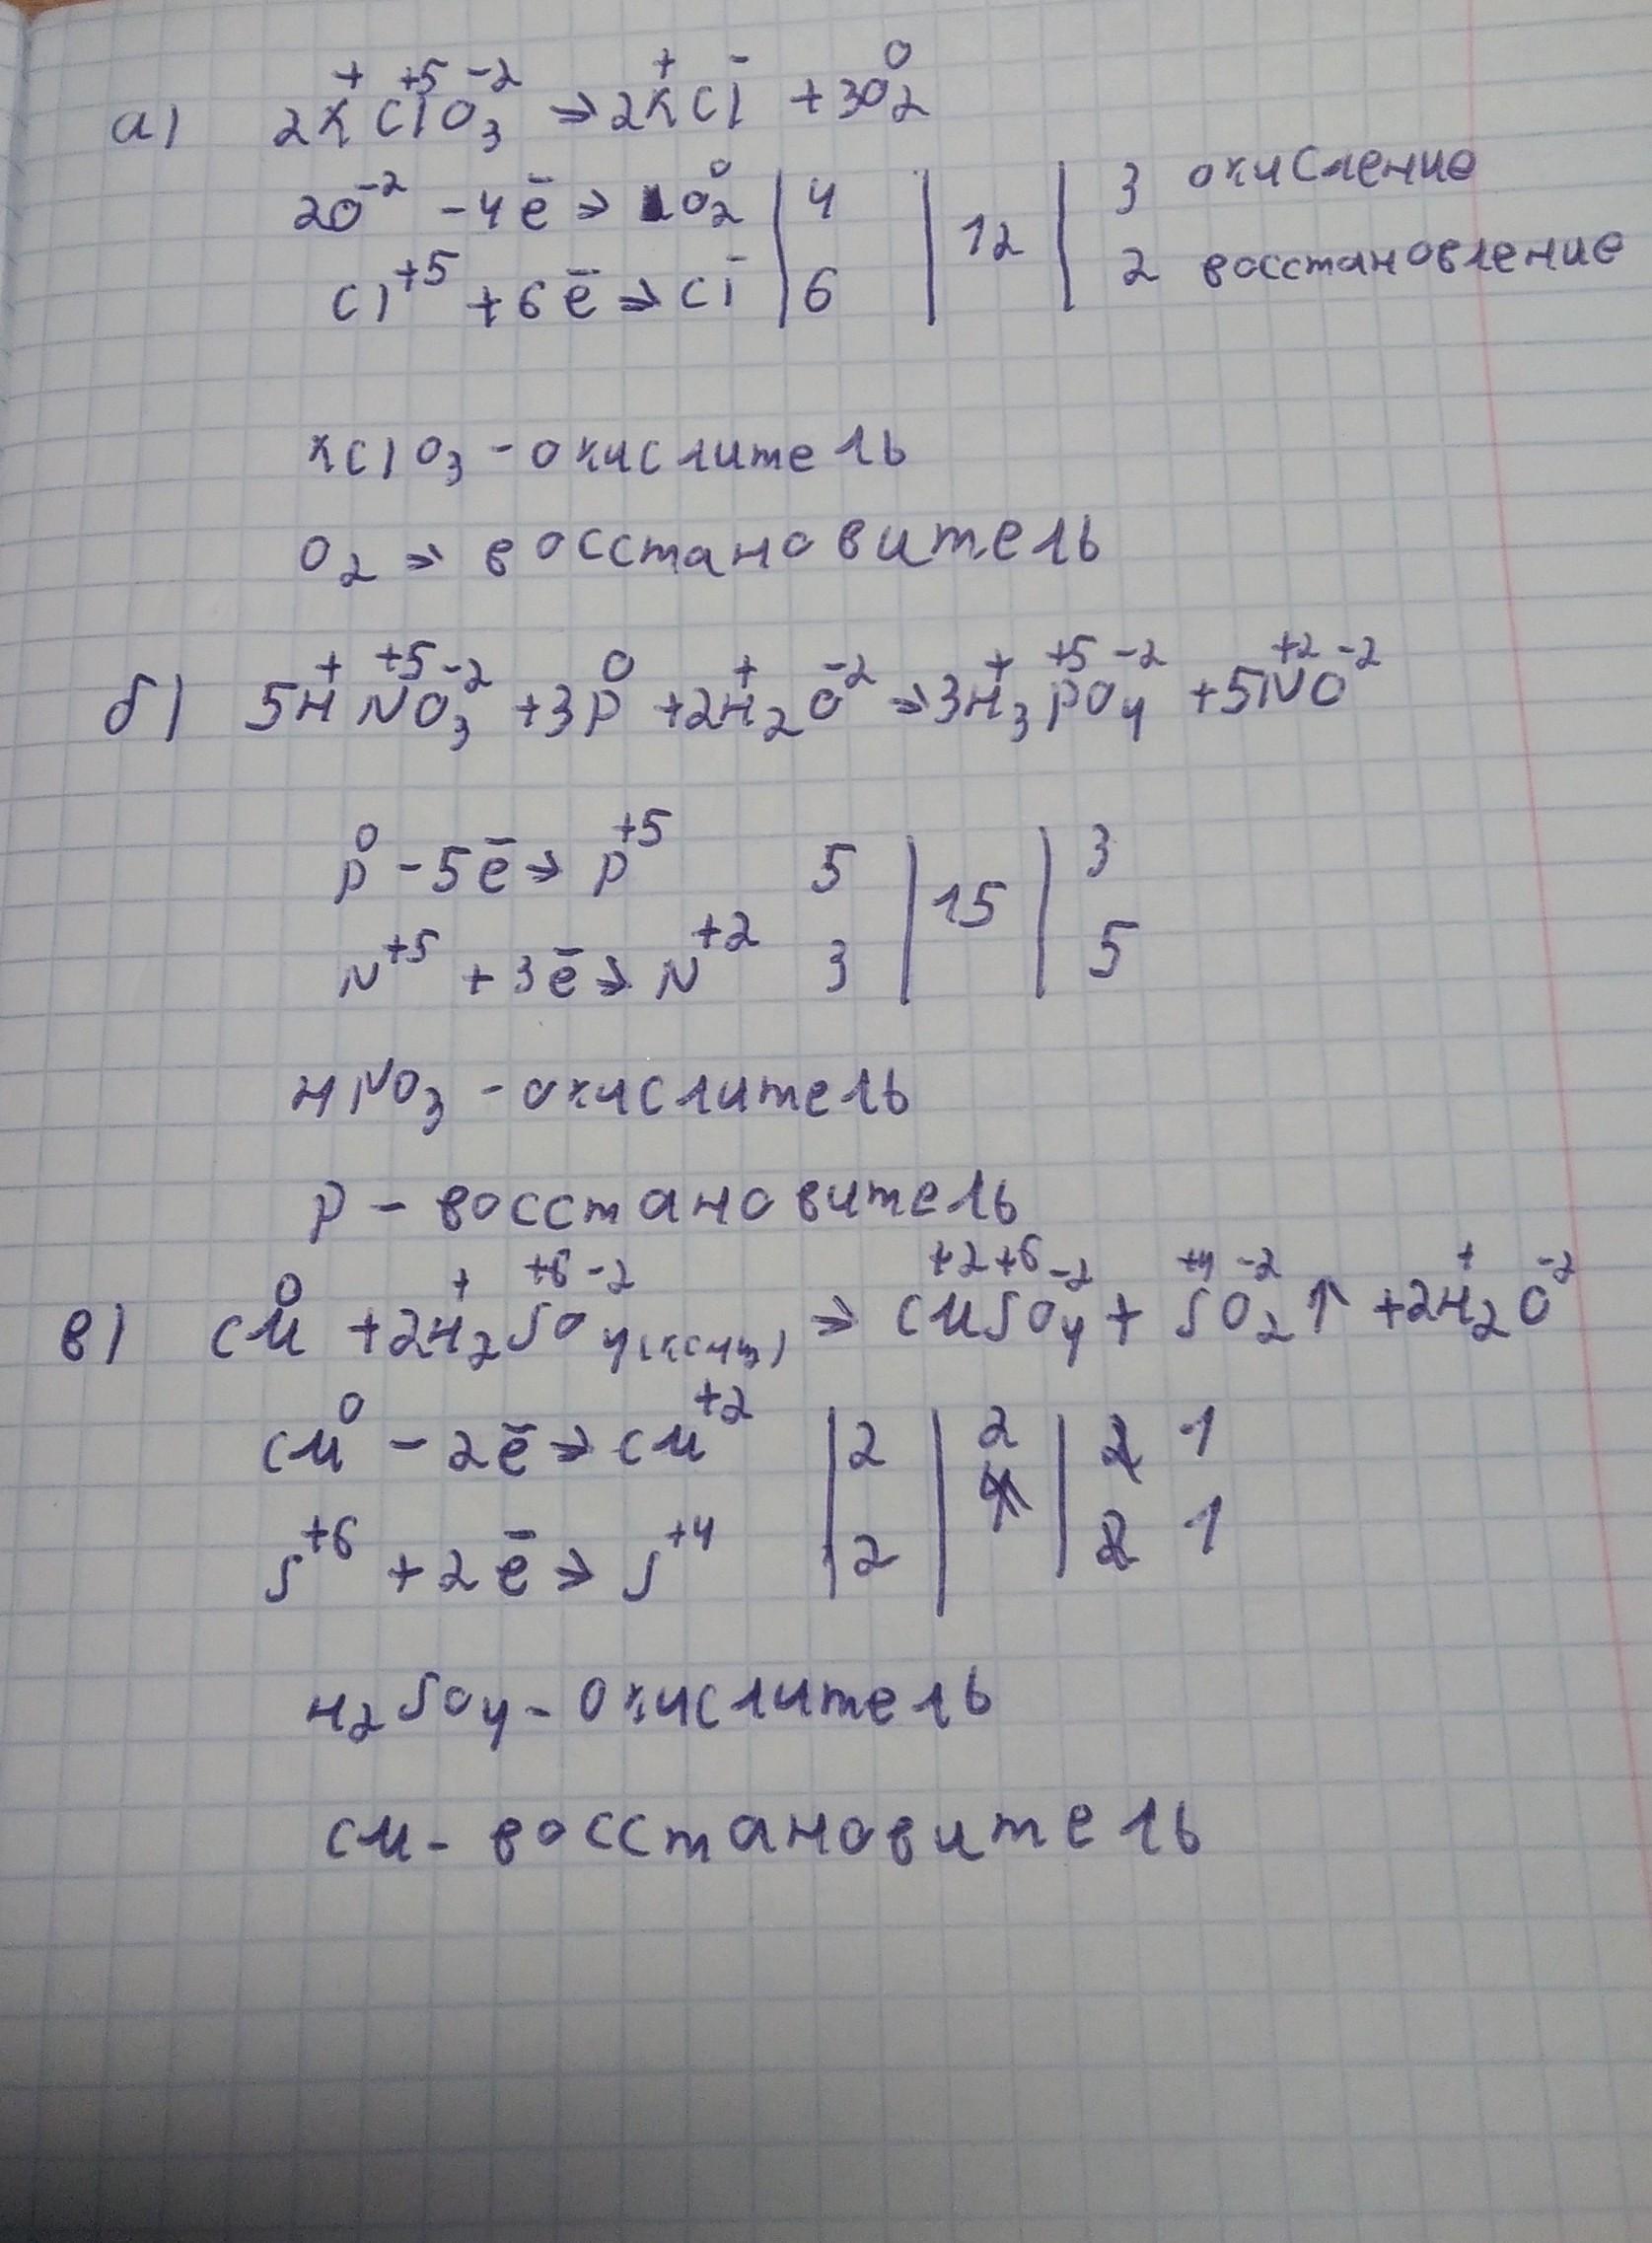 а) 2K⁺Cl⁺⁵O₃⁻² → 2K⁺Cl⁻ + 3O₂⁰
2O⁻² - 4ē → 1O₂⁰ | 4 | 12 | 3 окисление
Cl⁺⁵ + 6ē → Cl⁻ | 6 | 2 восстановление
KClO₃ - окислитель
O₂ → восстановитель
б) 5H⁺N⁺⁵O₃⁻² + 3P⁰ + 2H₂⁺O⁻² → 3H₃⁺P⁺⁵O₄⁻² + 5N⁺²O⁻²
P⁰ - 5ē → P⁺⁵ 5 | 15 | 3
N⁺⁵ + 3ē → N⁺² 3 | | 5
HNO₃ - окислитель
P - восстановитель
в) Cu⁰ + 2H₂⁺S⁺⁶O₄⁻²(конц) → Cu⁺²S⁺⁶O₄⁻² + S⁺⁴O₂⁻²↑ + 2H₂⁺O⁻²
Cu⁰ - 2ē → Cu⁺² | 2 | 2 | 2 1
S⁺⁶ + 2ē → S⁺⁴ | 2 | 4 | 2 1
H₂SO₄ - окислитель
Cu - восстановитель